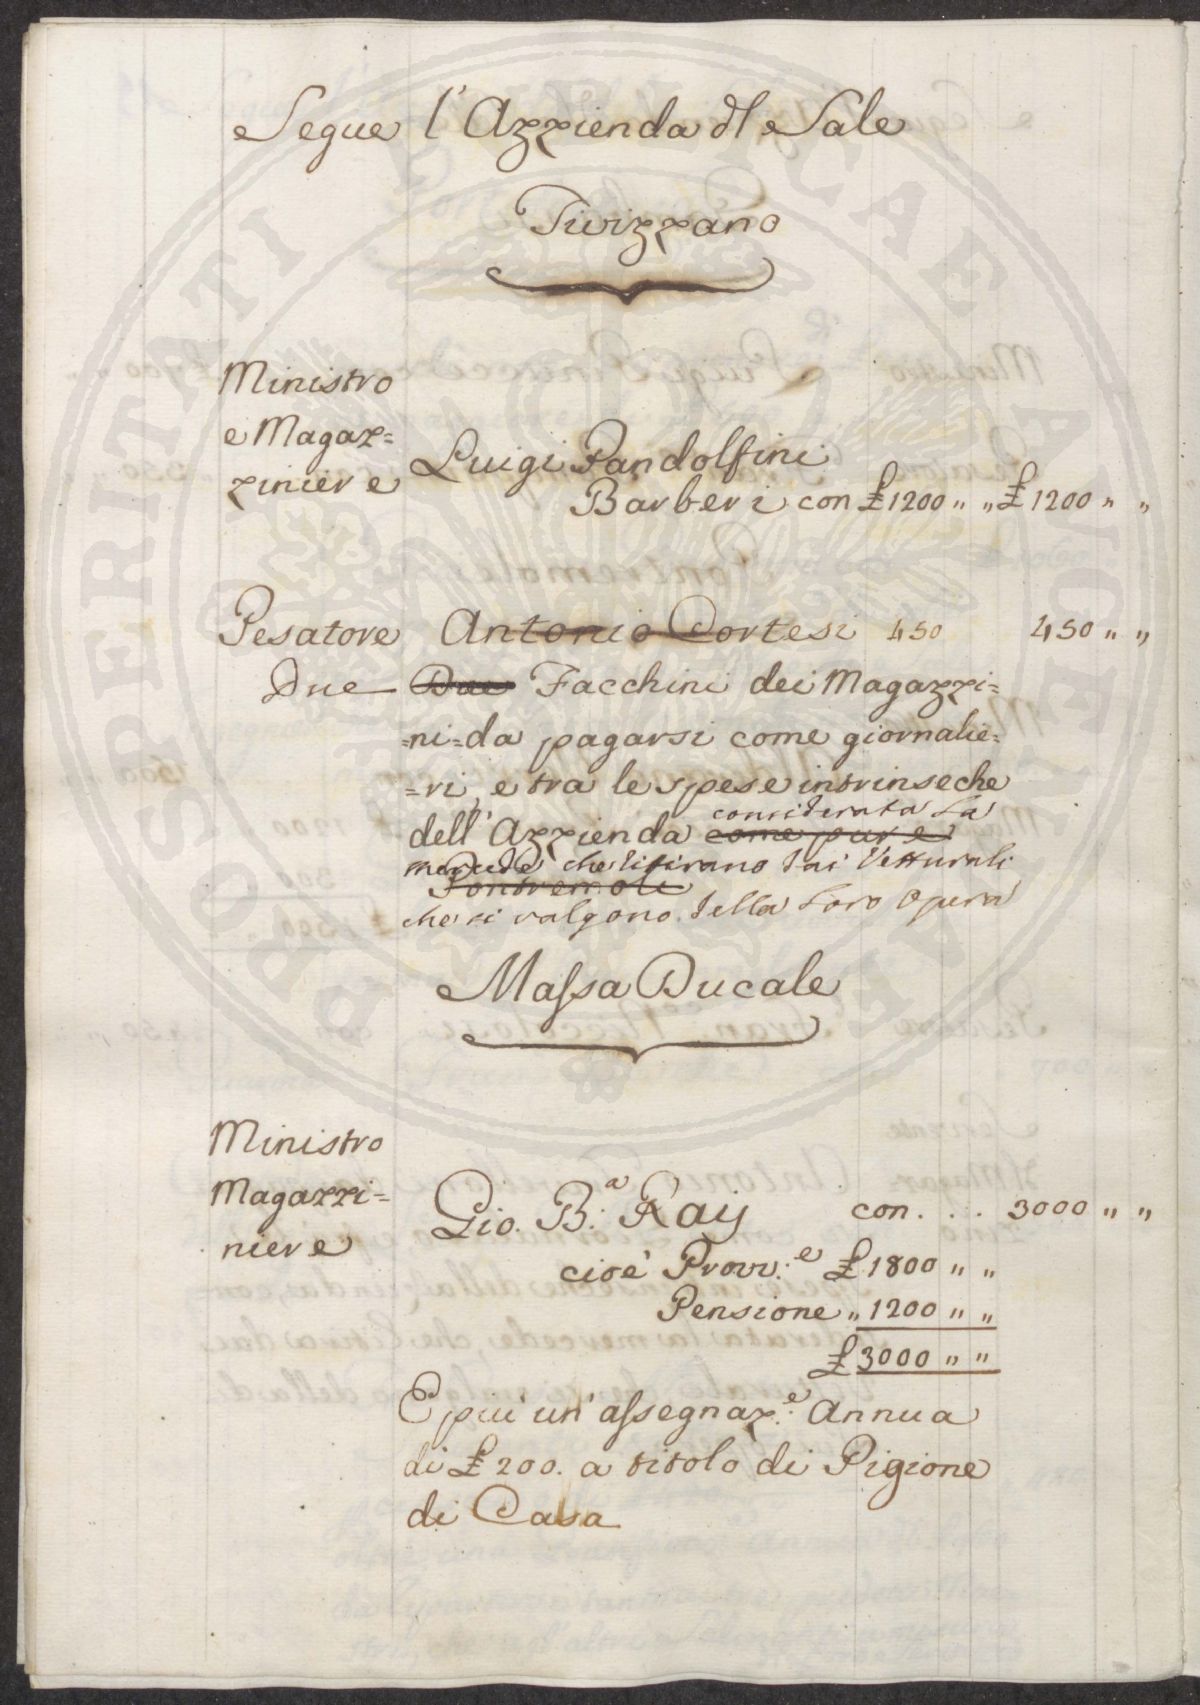 Segue l'Azzienda dl Sale
Fivizzano
Ministro
e Magaz=
ziniere
Luigi Pandolfini
Barberi con £ 1200 " " £ 1200 " "
Pesatore Antonio Cortesi 450 450 " "
Due Due Facchini dei Magazzi=
=ni=da pagarsi come giornalie=
=ri, e tra le spese intrinseche
considerata la
dell'Azzienda come pure
mercede che litirano dai Vetturali
Pontremoli
che si valgono della loro Opera
Massa Ducale
Ministro
Magazzi=
niere
Gio. B.a Raij con . . . 3000 " "
cioè Provv:e £ 1800 " "
Pensione " 1200 " "
£ 3000 " "
E più un'assegnaz:e Annua
di £ 200. a titolo di Pigione
di Casa
PROSPERITATI PVBLICAE AVGENDAE